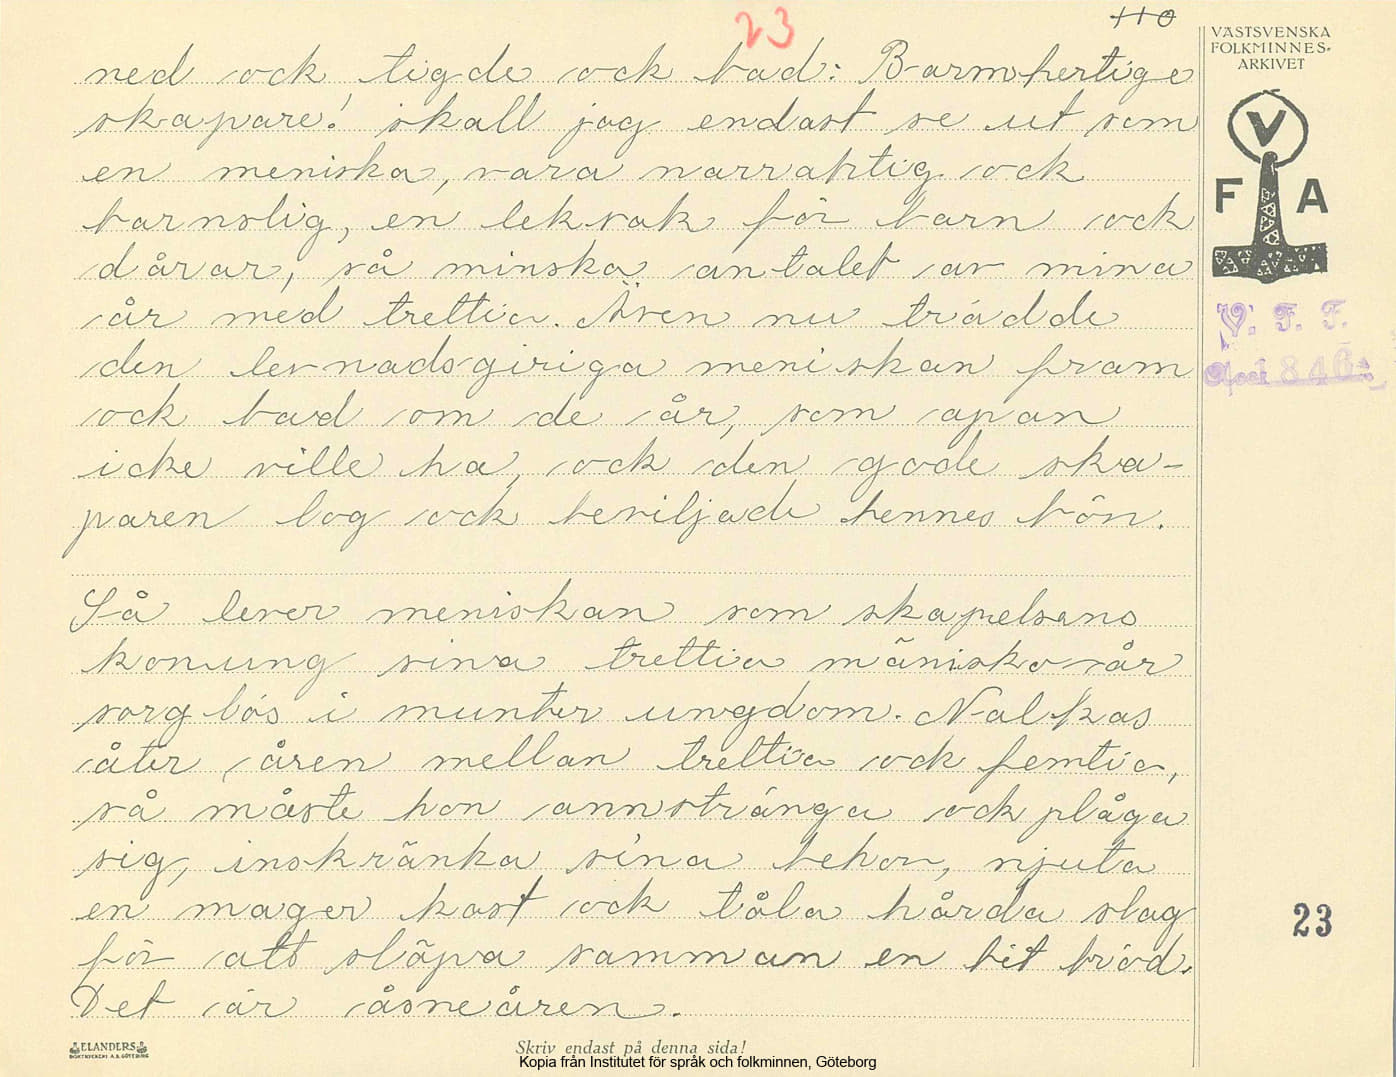 23
110
VÄSTSVENSKA
FOLKMINNES-
ARKIVET
V
F A
V. F. F.
Acc: 1846:
ned ock tigde ock bad: Barmhertige
skapare! skall jag endast se ut som
en meniska, vara narraktig ock
barnslig, en leksak för barn ock
dårar, så minska antalet av mina
år med trettio. Även nu trädde
den levnadsgiriga meniskan fram
ock bad om de år, som apan
icke ville ha, ock den gode ska-
paren log ock beviljade hennes bön.
Så lever meniskan som skapelsens
konung sina trettio människo-år
sorglös i munter ungdom. Nalkas
åter åren mellan trettio ock femtio,
så måste hon annstränga ock plåga
sig, inskränka sina behov, njuta
en mager kost ock tåla hårda slag
för att släpa samman en bit bröd.
Det är åsneåren.
23
ELANDERS
BOKTRYCKERI A.B. GÖTEBORG
Skriv endast på denna sida!
Kopia från Institutet för språk och folkminnen, Göteborg